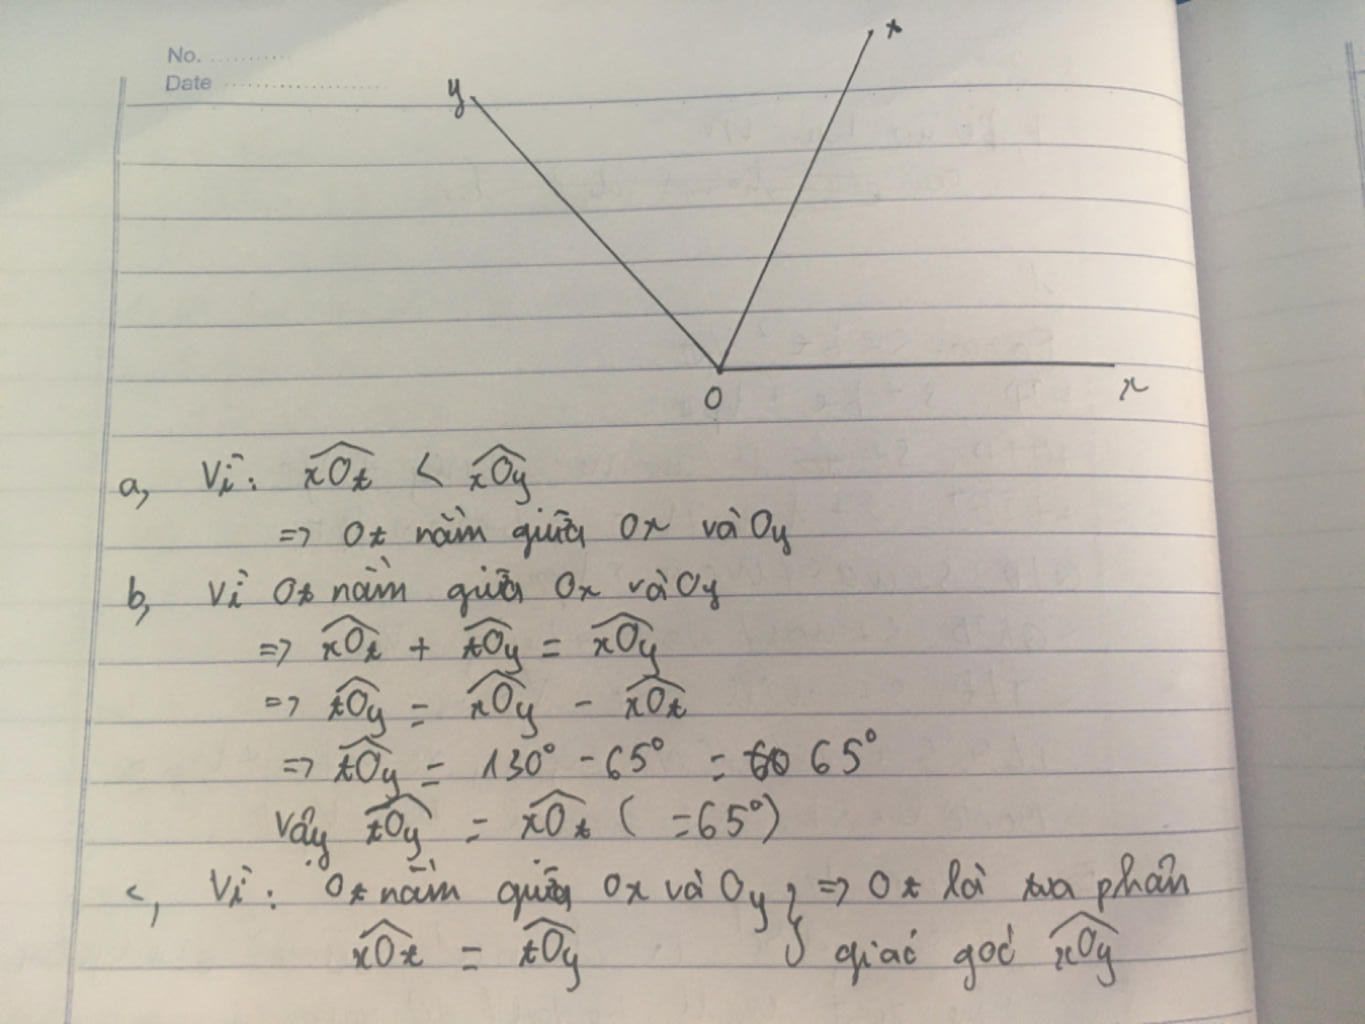 No. ..........
Date ..................
y
t
O
x
a, Vì: xOt < xOy
=> Ot nằm giữa Ox và Oy
b, Vì Ot nằm giữa Ox và Oy
=> xOt + tOy = xOy
=> tOy = xOy - xOt
=> tOy = 130° - 65° = 65°
Vậy tOy = xOt ( = 65°)
c, Vì: Ot nằm giữa Ox và Oy } => Ot là tia phân
xOt = tOy } giác góc xOy